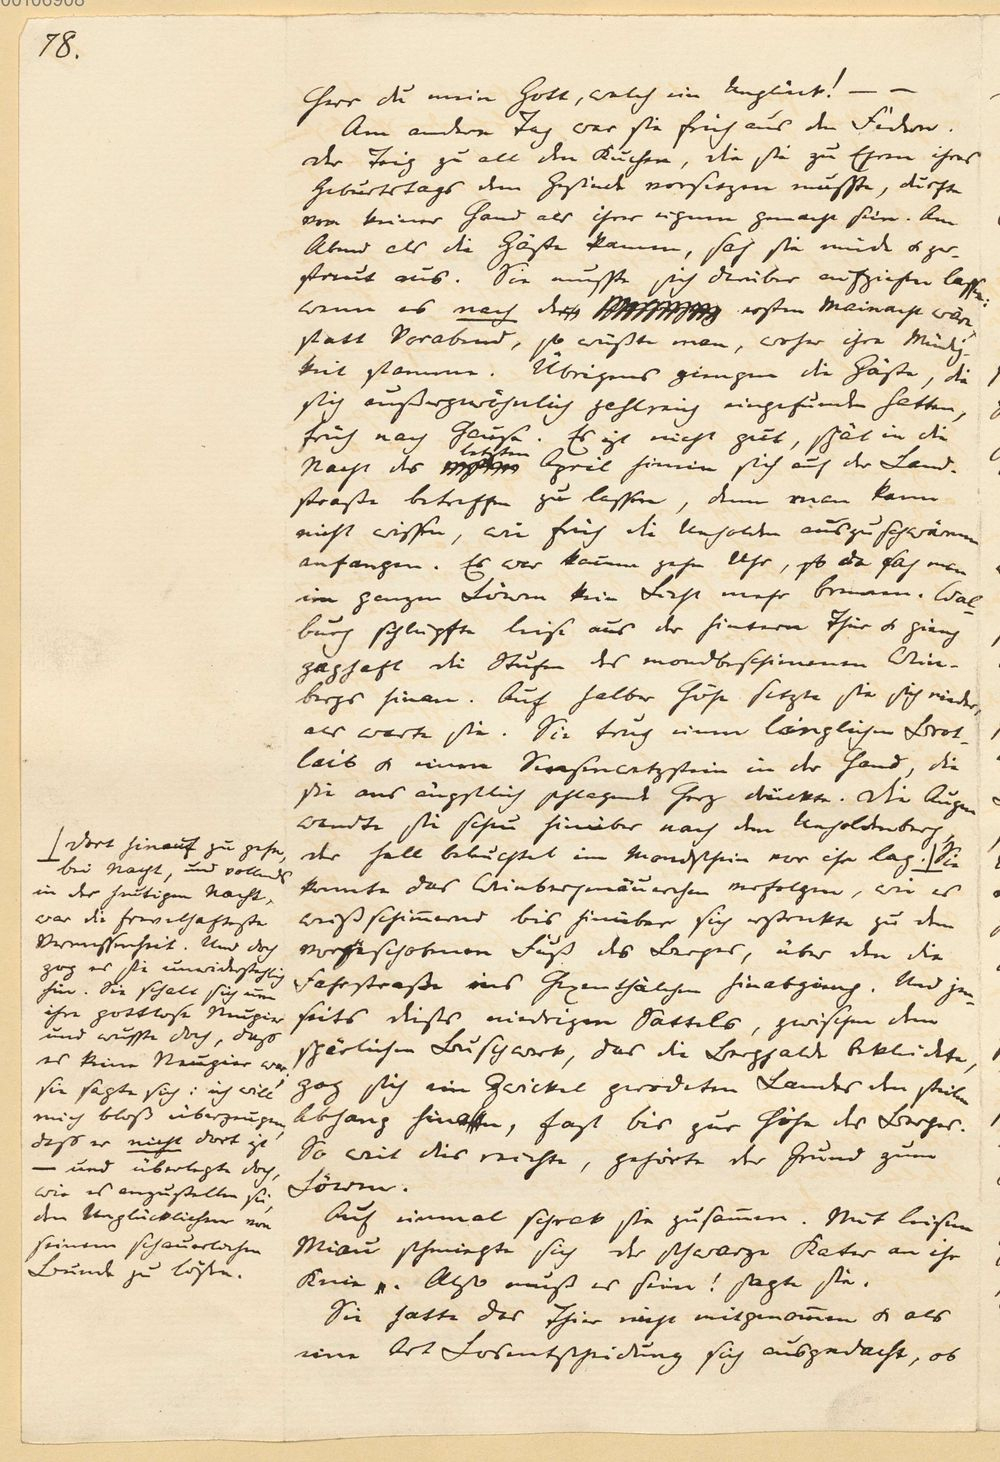 00106908
78.
Herr du mein Gott, welch ein Unglück! — —
Am andern Tag war sie früh aus den Federn.
Der Teig zu all den Kuchen, die sie zu Ehren ihres
Geburtstags dem Gesinde vorsetzen musste, durfte
von keiner Hand als ihrer eignen gemacht sein. Am
Abend als die Gäste kamen, sah sie müde & zer-
streut aus. Sie musste sich darüber aufziehen lassen:
wenn es nach der ersten Mainacht wäre
statt Vorabend, so wüsste man, woher ihre Müdig-
keit stamme. Übrigens giengen die Gäste, die
sich außergewöhnlich zahlreich eingefunden hatten,
früh nach Hause. Es ist nicht gut, spät in die
Nacht des letzten April hinein sich auf der Land-
straße betreffen zu lassen, denn man kann
nicht wissen, wie früh die Unholden auszuschwärmen
anfangen. Es war kaum zehn Uhr, so da sah man
im ganzen Löwen kein Licht mehr brennen. Wal-
burg schlüpfte leise aus der hintern Thür & gieng
zaghaft die Stufen des mondbeschienenen Wein-
bergs hinan. Auf halber Höhe setzte sie sich nieder,
als warte sie. Sie trug einen länglichen Brot-
laib & einen Sensenwetzstein in der Hand, die
sie ans ängstlich schlagende Herz drückte. Die Augen
wandte sie scheu hinüber nach dem Unholdenberg,
der hell beleuchtet im Mondschein vor ihr lag. Sie
konnte das Weinbergmäuerchen verfolgen, wie es
weißschimmernd bis hinüber sich erstreckte zu dem
vorgeschobenen Fuß des Berges, über den die
Fahrstraße ins Hexenthälchen hinabgieng. Und jen-
seits dieses niedrigen Sattels, zwischen dem
spärlichen Buschwerk, das die Berghalde bekleidete,
zog sich ein Zwickel gerodeten Landes den steilen
Abhang hinan, fast bis zur Höhe des Berges.
So weit dies reichte, gehörte der Grund zum
Löwen.
Auf einmal schrak sie zusammen. Mit leisem
Miau schmiegte sich der schwarze Kater an ihr
Knie. Also muß es sein! sagte sie.
Sie hatte das Thier nicht mitgenommen & als
eine Art Losentscheidung sich ausgedacht, ob
Dort hinauf zu gehn,
bei Nacht, und vollends
in der heutigen Nacht,
war die frevelhafteste
Vermessenheit. Und doch
zog es sie unwiderstehlich
hin. Sie schalt sich um
ihre gottlose Neugier
und wusste doch, dass
es keine Neugier war,
sie sagte sich: ich will
mich bloß überzeugen,
dass er nicht dort ist
— und überlegte doch,
wie es anzustellen sei,
den Unglücklichen von
seinem schauerlichen
Bunde zu lösen.